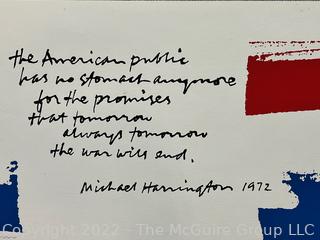 the American public
has no stomach anymore
for the promises
that tomorrow
always tomorrow
the war will end.
Michael Harrington 1972
Copyright © 2022 - The McGuire Group, LLC